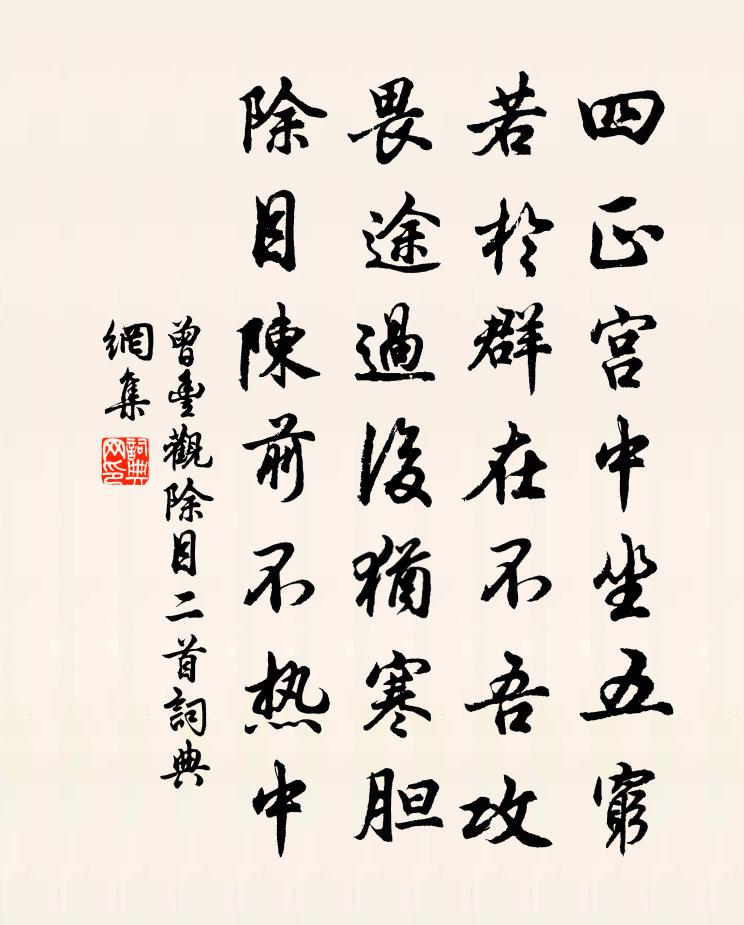 四正宫中坐五窮
若於群在不吾攻
畏途過後猶寒胆
除目陳前不热中
曾豊觀除目二首詞典
網集
詞典网印